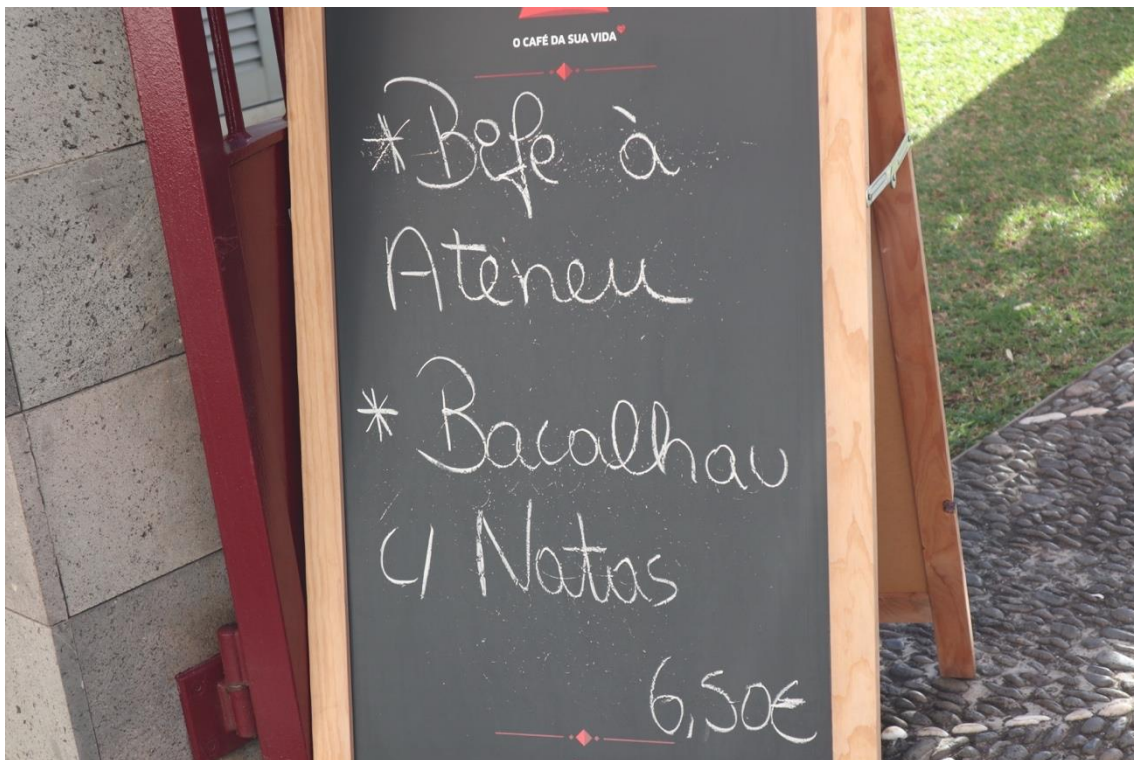 O CAFÉ DA SUA VIDA
* Bife à
Ateneu
* Bacalhau
c/ Natas
6,50€